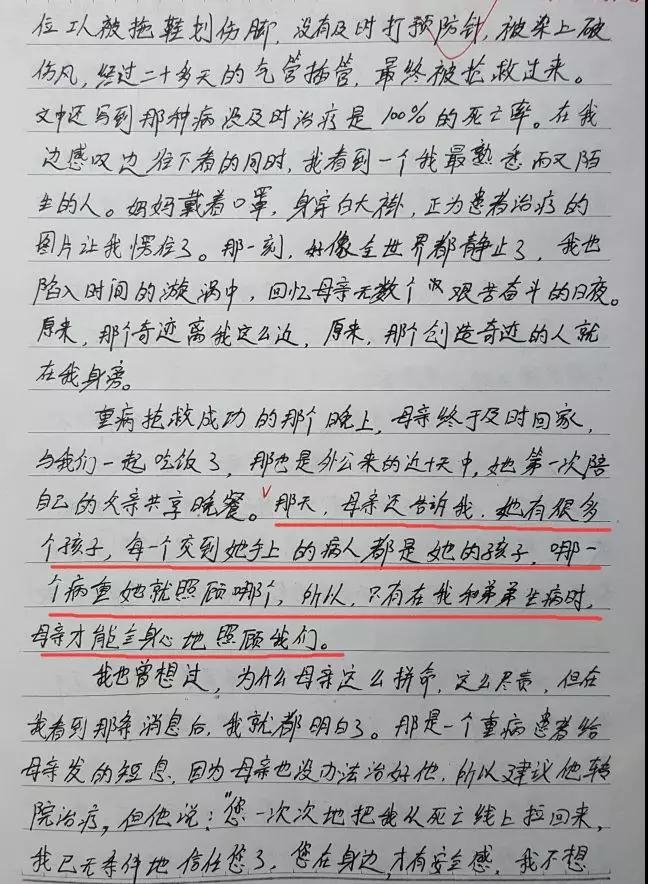 位工人被拖鞋划伤脚，没有及时打预防针，被染上破
伤风，经过二十多天的气管插管，最终被抢救过来。
文中还写到那种病没及时治疗是100%的死亡率。在我
边感叹边往下看的同时，我看到一个我最熟悉而又陌
生的人。妈妈戴着口罩，身穿白大褂，正为患者治疗的
图片让我愣住了。那一刻，好像全世界都静止了，我也
陷入时间的漩涡中，回忆母亲无数个艰苦奋斗的日夜。
原来，那个奇迹离我这么近，原来，那个创造奇迹的人就
在我身旁。
重病抢救成功的那个晚上，母亲终于及时回家，
与我们一起吃饭了，那也是外公来的近十天中，她第一次陪
自己的父亲共享晚餐。那天，母亲还告诉我，她有很多
个孩子，每一个交到她手上的病人都是她的孩子，哪一
个病重她就照顾哪个，所以，只有在我和弟弟生病时，
母亲才能全身心地照顾我们。
我也曾想过，为什么母亲这么拼命，这么尽责，但在
我看到那条消息后，我就都明白了。那是一个重病患者给
母亲发的短息，因为母亲也没办法治好他，所以建议他转
院治疗，但他说：“您一次次地把我从死亡线上拉回来，
我已无条件地信任您了，您在身边，才有安全感，我不想